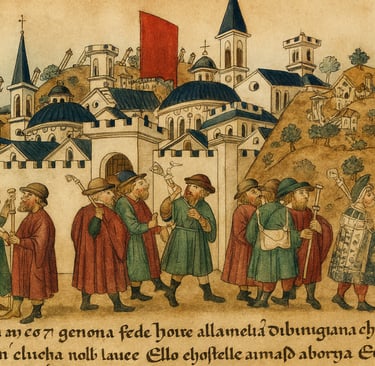 an co 7 genona fede hoire allamelia dibunigiana ch
n clucha nolb lauce Ello choſtelle aimaſd aborya E